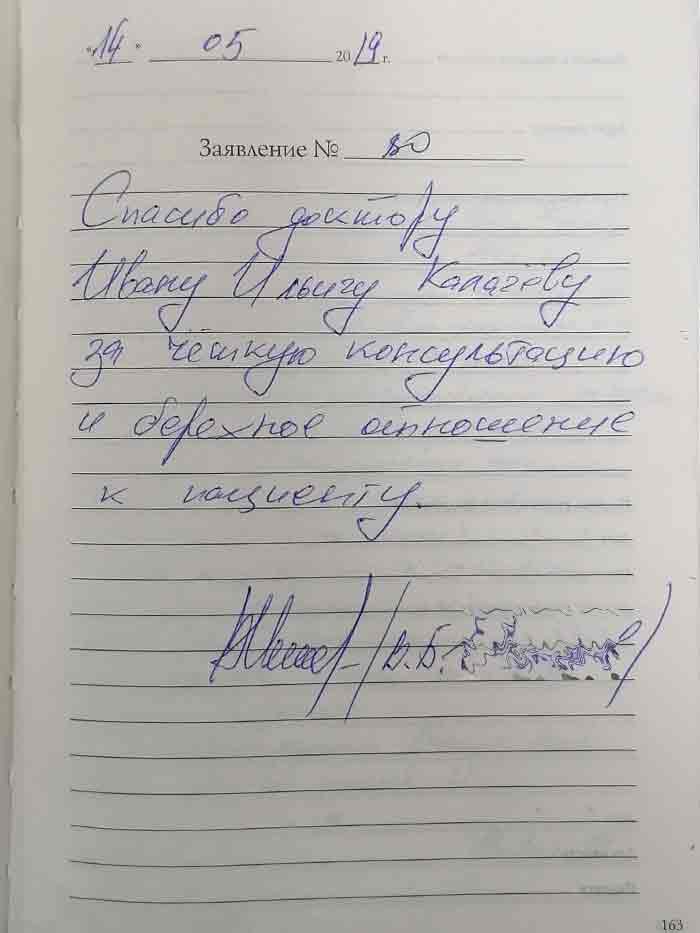 "14" 05 2019 г.
Заявление № 80
Спасибо доктору
Ивану Ильичу Калачёву
за чёткую консультацию
и бережное отношение
к пациенту.
/В.Б.
163